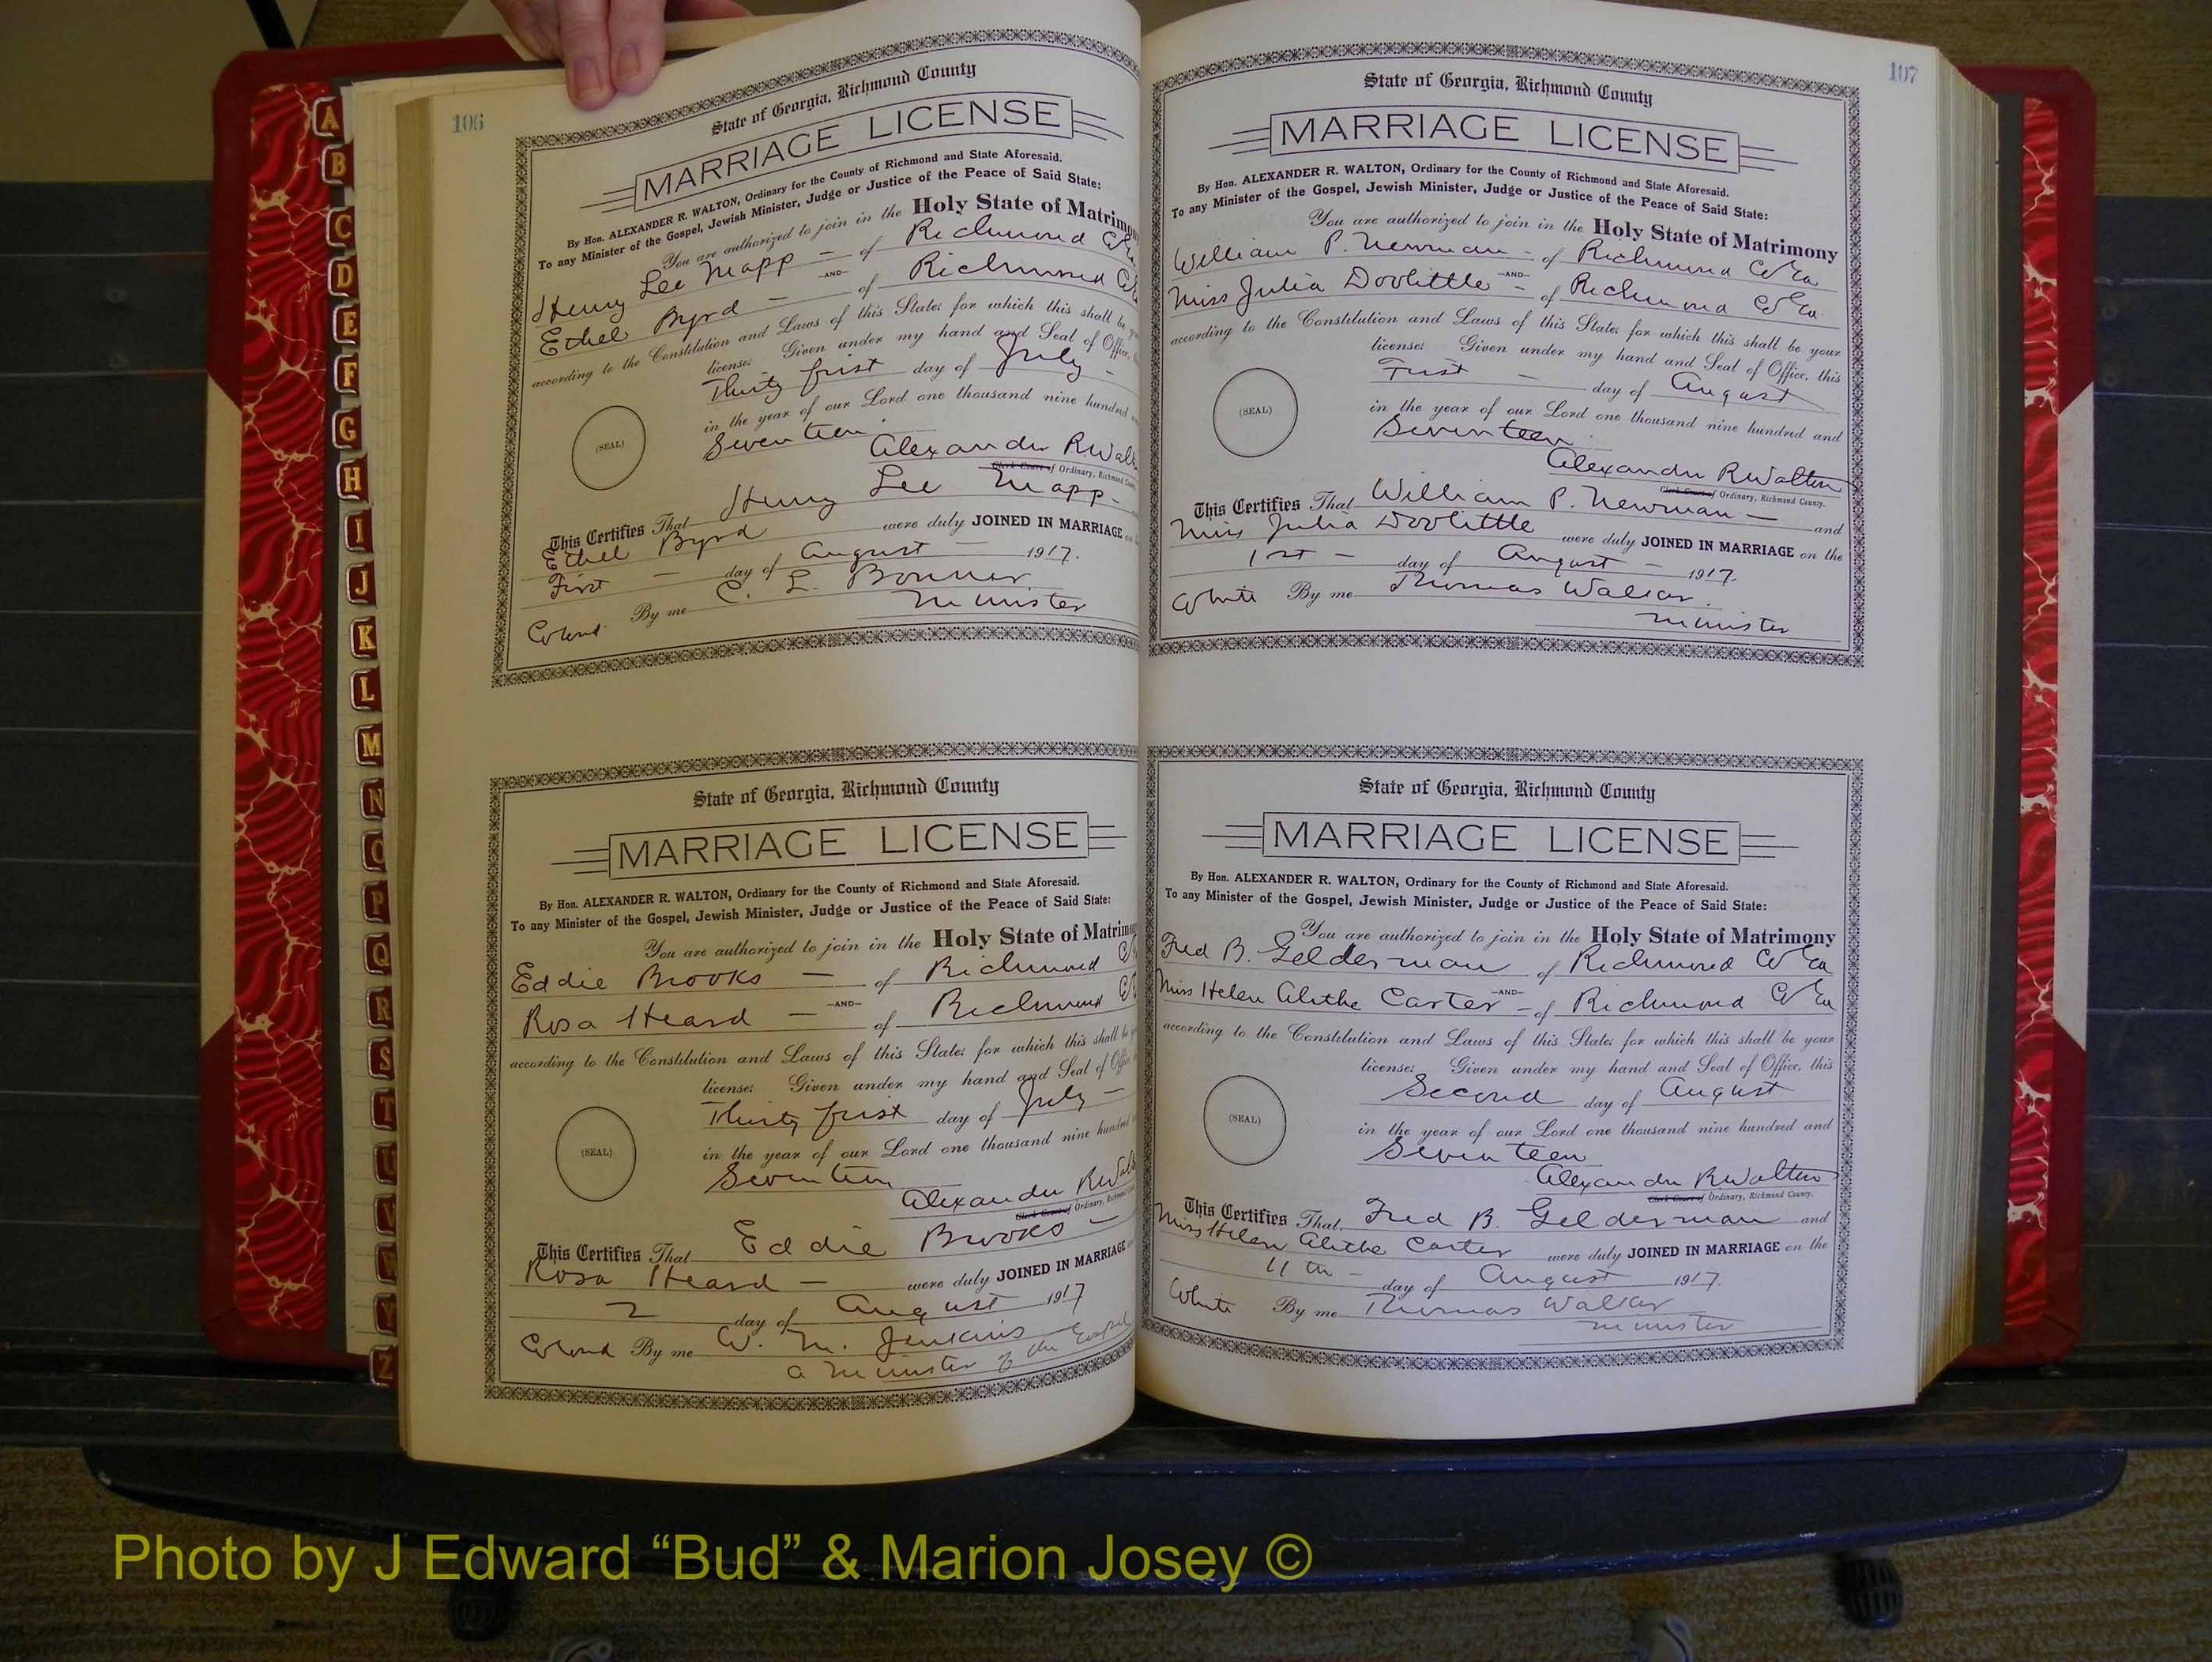 106
State of Georgia, Richmond County
MARRIAGE LICENSE
By Hon. ALEXANDER R. WALTON, Ordinary for the County of Richmond and State Aforesaid.
To any Minister of the Gospel, Jewish Minister, Judge or Justice of the Peace of Said State:
You are authorized to join in the Holy State of Matrimony
Henry Lee Mapp - of Richmond Co
-AND-
Ethel Byrd - of Richmond Co
according to the Constitution and Laws of this State: for which this shall be
license: Given under my hand and Seal of Office,
Thirty first day of July -
in the year of our Lord one thousand nine hundred
Seventeen.
(SEAL)
Alexander R Walt
Clerk Court of Ordinary, Richmond County
This Certifies That Henry Lee Mapp -
Ethel Byrd were duly JOINED IN MARRIAGE
First - day of August - 1917.
Colored By me C. L. Bonner
Minister
State of Georgia, Richmond County
MARRIAGE LICENSE
By Hon. ALEXANDER R. WALTON, Ordinary for the County of Richmond and State Aforesaid.
To any Minister of the Gospel, Jewish Minister, Judge or Justice of the Peace of Said State:
You are authorized to join in the Holy State of Matrimo
Eddie Brooks - of Richmond
-AND-
Rosa Heard - of Richmond
according to the Constitution and Laws of this State: for which this shall be
license: Given under my hand and Seal of Office
Thirty first day of July -
in the year of our Lord one thousand nine hundred
Seventeen
(SEAL)
Alexander R Walt
Clerk Court of Ordinary, Richmond
This Certifies That Eddie Brooks -
Rosa Heard - were duly JOINED IN MARRIAGE
2 day of August 1917
Colored By me W. M. Jenkins
a Minister of the Gospel
107
State of Georgia, Richmond County
MARRIAGE LICENSE
By Hon. ALEXANDER R. WALTON, Ordinary for the County of Richmond and State Aforesaid.
To any Minister of the Gospel, Jewish Minister, Judge or Justice of the Peace of Said State:
You are authorized to join in the Holy State of Matrimony
William P. Newman - of Richmond Co Ga
-AND-
Miss Julia Doolittle - of Richmond Co Ga
according to the Constitution and Laws of this State: for which this shall be your
license: Given under my hand and Seal of Office, this
First - day of August
in the year of our Lord one thousand nine hundred and
Seventeen.
(SEAL)
Alexander R Walton
Clerk Court of Ordinary, Richmond County.
This Certifies That William P. Newman - and
Miss Julia Doolittle were duly JOINED IN MARRIAGE on the
1st - day of August - 1917.
White By me Thomas Walker.
Minister
State of Georgia, Richmond County
MARRIAGE LICENSE
By Hon. ALEXANDER R. WALTON, Ordinary for the County of Richmond and State Aforesaid.
To any Minister of the Gospel, Jewish Minister, Judge or Justice of the Peace of Said State:
You are authorized to join in the Holy State of Matrimony
Fred B. Gelderman of Richmond Co Ga
-AND-
Miss Helen Alethe Carter - of Richmond Co Ga
according to the Constitution and Laws of this State: for which this shall be your
license: Given under my hand and Seal of Office, this
Second day of August
in the year of our Lord one thousand nine hundred and
Seventeen
(SEAL)
Alexander R Walton
Clerk Court of Ordinary, Richmond County.
This Certifies That Fred B. Gelderman and
Miss Helen Alethe Carter were duly JOINED IN MARRIAGE on the
11th - day of August 1917.
White By me Thomas Walker
Minister
A
B
C
D
E
F
G
H
I
J
K
L
M
N
O
P
Q
R
S
T
U
V
W
Y
Z
Photo by J Edward “Bud” & Marion Josey ©